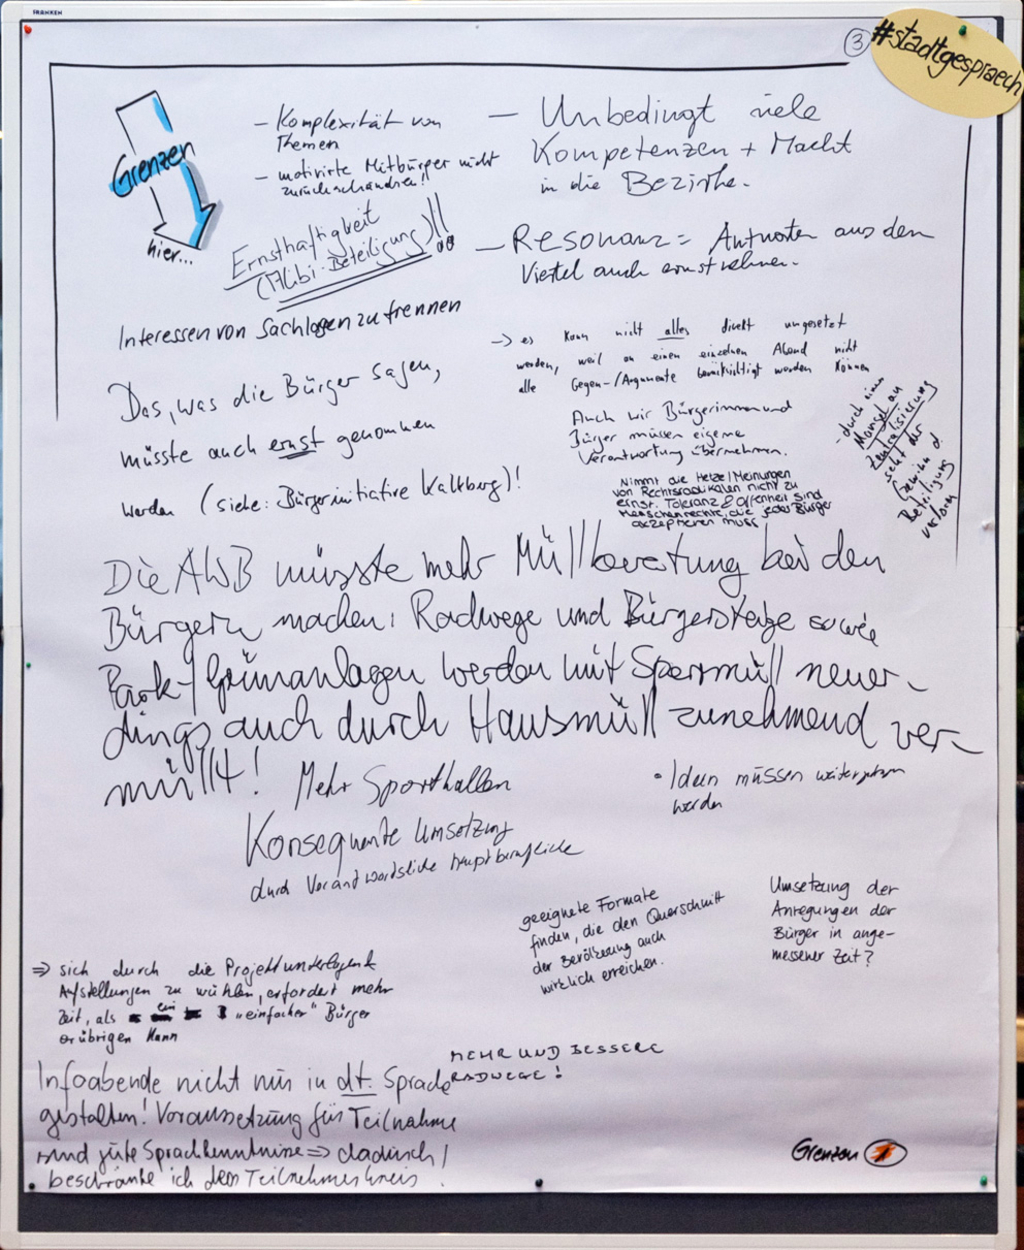 FRANKEN
③
#stadtgespraech
Grenzen
hier...
- Komplexität von
Themen
- motivirte Mitbürger nicht
zurückschandren!!
Ernsthaftigkeit
(Alibi-Beteiligung)!!
- Unbedingt viele
Kompetenzen + Macht
in die Bezirke.
- Resonanz = Antworten aus dem
Viertel auch ernst nehmen.
Interessen von Sachlagen zu trennen
-> es kann nicht alles direkt umgesetzt
werden, weil an einen einzelnen Abend nicht
alle Gegen-/Argumente berücksichtigt werden können
Das, was die Bürger sagen,
müsste auch ernst genommen
werden (siehe: Bürgerinitiative Kalkberg)!
Auch wir Bürgerinnen und
Bürger müssen eigene
Verantwortung übernehmen.
Nimmt die Hetze/Meinungen
von Rechtsradikalen nicht zu
ernst. Toleranz & Offenheit sind
Menschenrechte, die jeder Bürger
akzeptieren muss
- durch einen
Mangel an
Zentralisierung
geht der
Gewinn d.
Beteiligung
verloren
Die AWB müsste mehr Müllberatung bei den
Bürgern machen: Radwege und Bürgersteige sowie
Park-/Grünanlagen werden mit Sperrmüll neuer-
dings auch durch Hausmüll zunehmend ver-
müllt!
Mehr Sporthallen
• Ideen müssen weitergeben
werden
Konsequente Umsetzung
durch Verantwortliche hauptberufliche
geeignete Formate
finden, die den Querschnitt
der Bevölkerung auch
wirklich erreichen.
Umsetzung der
Anregungen der
Bürger in ange-
messener Zeit?
=> sich durch die Projektunterlagen &
Aufstellungen zu wühlen, erfordert mehr
Zeit, als ein "einfacher" Bürger
erübrigen kann
MEHR UND BESSERE
RADWEGE!
Infoabende nicht nur in dt. Sprache
gestalten! Voraussetzung für Teilnahme
sind gute Sprachkenntnisse => dadurch
beschränke ich den Teilnehmerkreis!
Grenzen